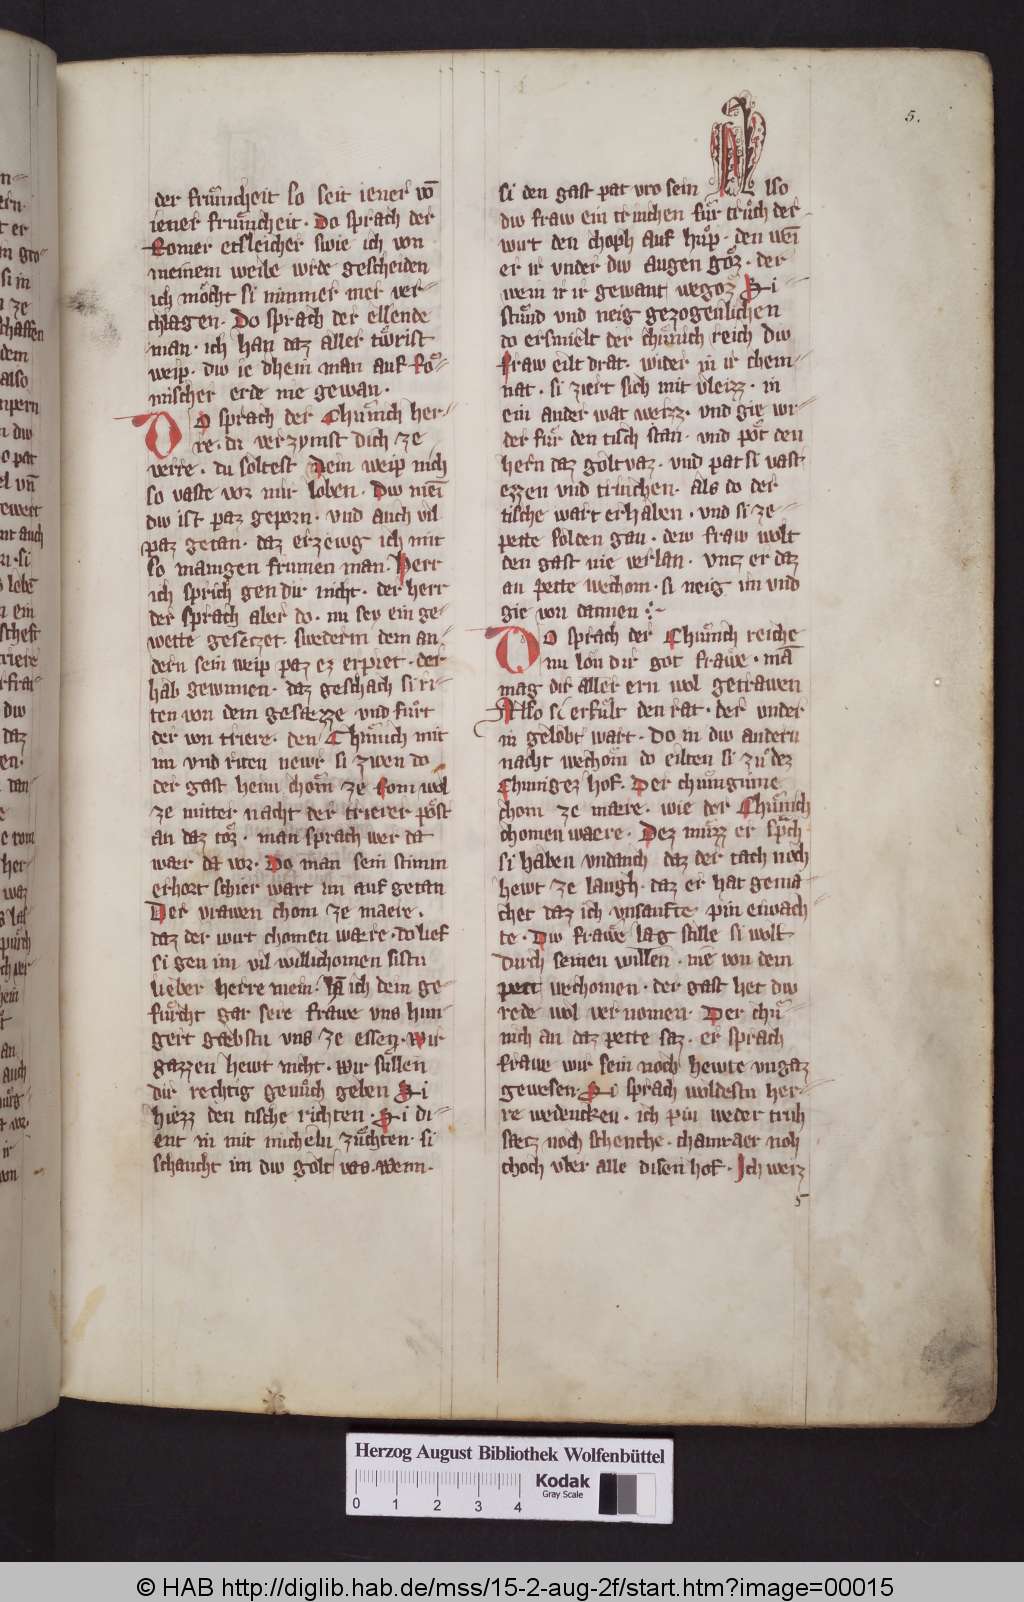 5.
der frümcheit so seit iener vō
iener frumcheit. Do sprach der
Romer etsleicher swie ich von
meinem weibe wrde gescheiden
ich möcht si nimmer mer ver-
chlagen. Do sprach der ellende
man. ich han daz aller tiwrist
weip. diw ie dhein man auf Rö-
mischer erde nie gewan.
DO sprach der Chünich her-
re. du verzymst dich ze
verre. du soltest Dein weip nich
so vaste vor mir loben. Diw mei
diw ist paz geporn. vnd auch vil
paz getan. daz erzewg ich mit
so manigen frumen man. Herr
ich sprich gen dir nicht. der herr
der sprach aber do. nu sey ein ge-
wette gesetzet. swederm dem an-
dern sein weip paz ez erpiet. der
hab gewunnen. daz geschach si ri-
ten von dem gesæzze vnd fürt
der von triere. den Chünich mit
im vnd riten newr si zwen do
der gast heim chom ze Rom wol
ze mitter nacht der trierer pöst
an daz tör. man sprach wer da
wær da vor. Do man sein stimm
erhort schier wart im auf getan
Der vrawen chom ze maere.
daz der wirt chomen wære. do lief
si gen im vil willichomen sistu
lieber herre mein. Hā ich dein ge-
fürcht gar sere frawe vns hun-
gert gæbstu vns ze essen. Wir
gazzen hewt nicht. wir süllen
dir rechtig genüch geben Si
hiezz den tische richten. Si di-
ent in mit micheln züchten. si
schancht im diw golt vas. Wenn.
si den gast pat vro sein Also
diw fraw ein trinchen für trüch der-
wirt den choph auf hüp. den wei
er ir vnder diw augen göz. der
wein ir ir gewant wegoz Si
stünd vnd neig gezogenlichen
do ersmielt der chünich reich Diw
fraw eilt drat. wider in ir chem-
nat. si ziert sich mit vleizz. in
ein ander wat weizz. vnd gie wi-
der für den tisch stan. vnd pöt den
hern daz goltvaz. vnd pat si vast
ezzen vnd trinchen. als do der
tische wart erhaben. vnd si ze-
pette solden gan. dew fraw wolt
den gast nie verlan. vntz er daz
an pette wechom. si neig im vnd
gie von dannen
DO sprach der Chünich reiche
nu lon dir got frawe. mā
mag dir aller ern wol getrawen
Also si erfült den rat. der vnder
in gelobt wart. Do in diw andern
nacht wechom do eilten si zu dez
Chuniges hof. Der chüniginne
chom ze mære. wie der Chünich
chomen waere. Dez müzz er sprch
si haben vndanch daz der tach noch
hewt ze langh. daz er hat gema-
chet daz ich vnsanfte pin erwach-
te. Diw frawe lag stille si wolt
Durch seinen willen. nie von dem
pett wechomen. der gast het diw
rede wol vernomen. Der chü-
nich an daz pette saz. er sprach
frawe wir sein noch hewte vngaz
gewesen. Si sprach woldestu her-
re wedencken. ich pin weder truh
sætz noch schenche. chamraer noh
choch vber alle disen hof. Ich weiz
5
Herzog August Bibliothek Wolfenbüttel
0 1 2 3 4
Kodak
Gray Scale
© HAB http://diglib.hab.de/mss/15-2-aug-2f/start.htm?image=00015